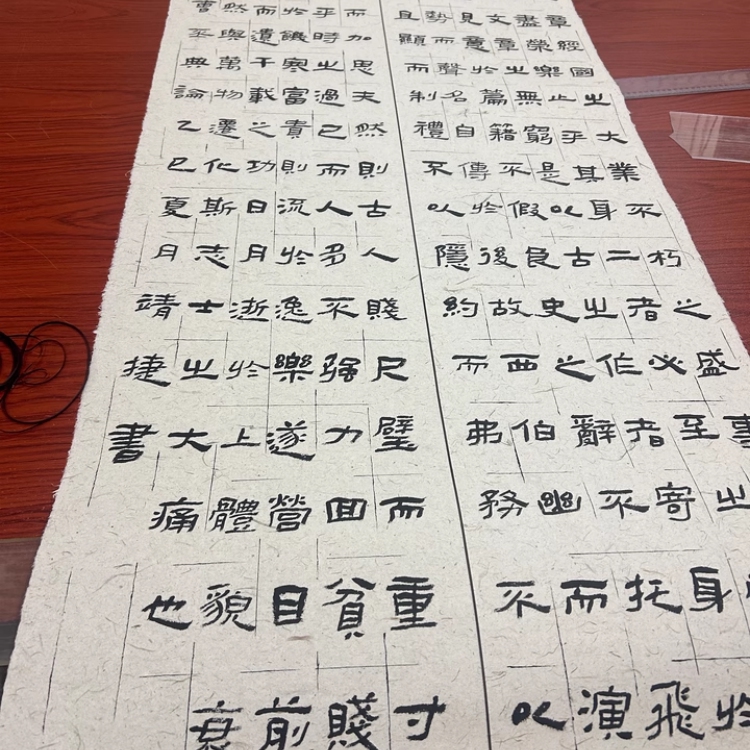 章經國之大業不朽之盛事
盡榮樂止乎其身二者必至之
文章之無窮是以古之作者寄身於
見意於篇籍不假良史之辭不托飛
勢而聲名自傳於後故西伯幽而演
旦顯而制禮不以隱約而弗務不以
而加思夫然則古人賤尺璧而重寸
乎時之過已而人多不强力回貧賤
於饑寒富貴則流於逸樂遂營目前
而遺千載之功日月逝於上體貌衰
然與萬物遷化斯志士之大痛也
曹丕典論乙巳夏月靖捷書